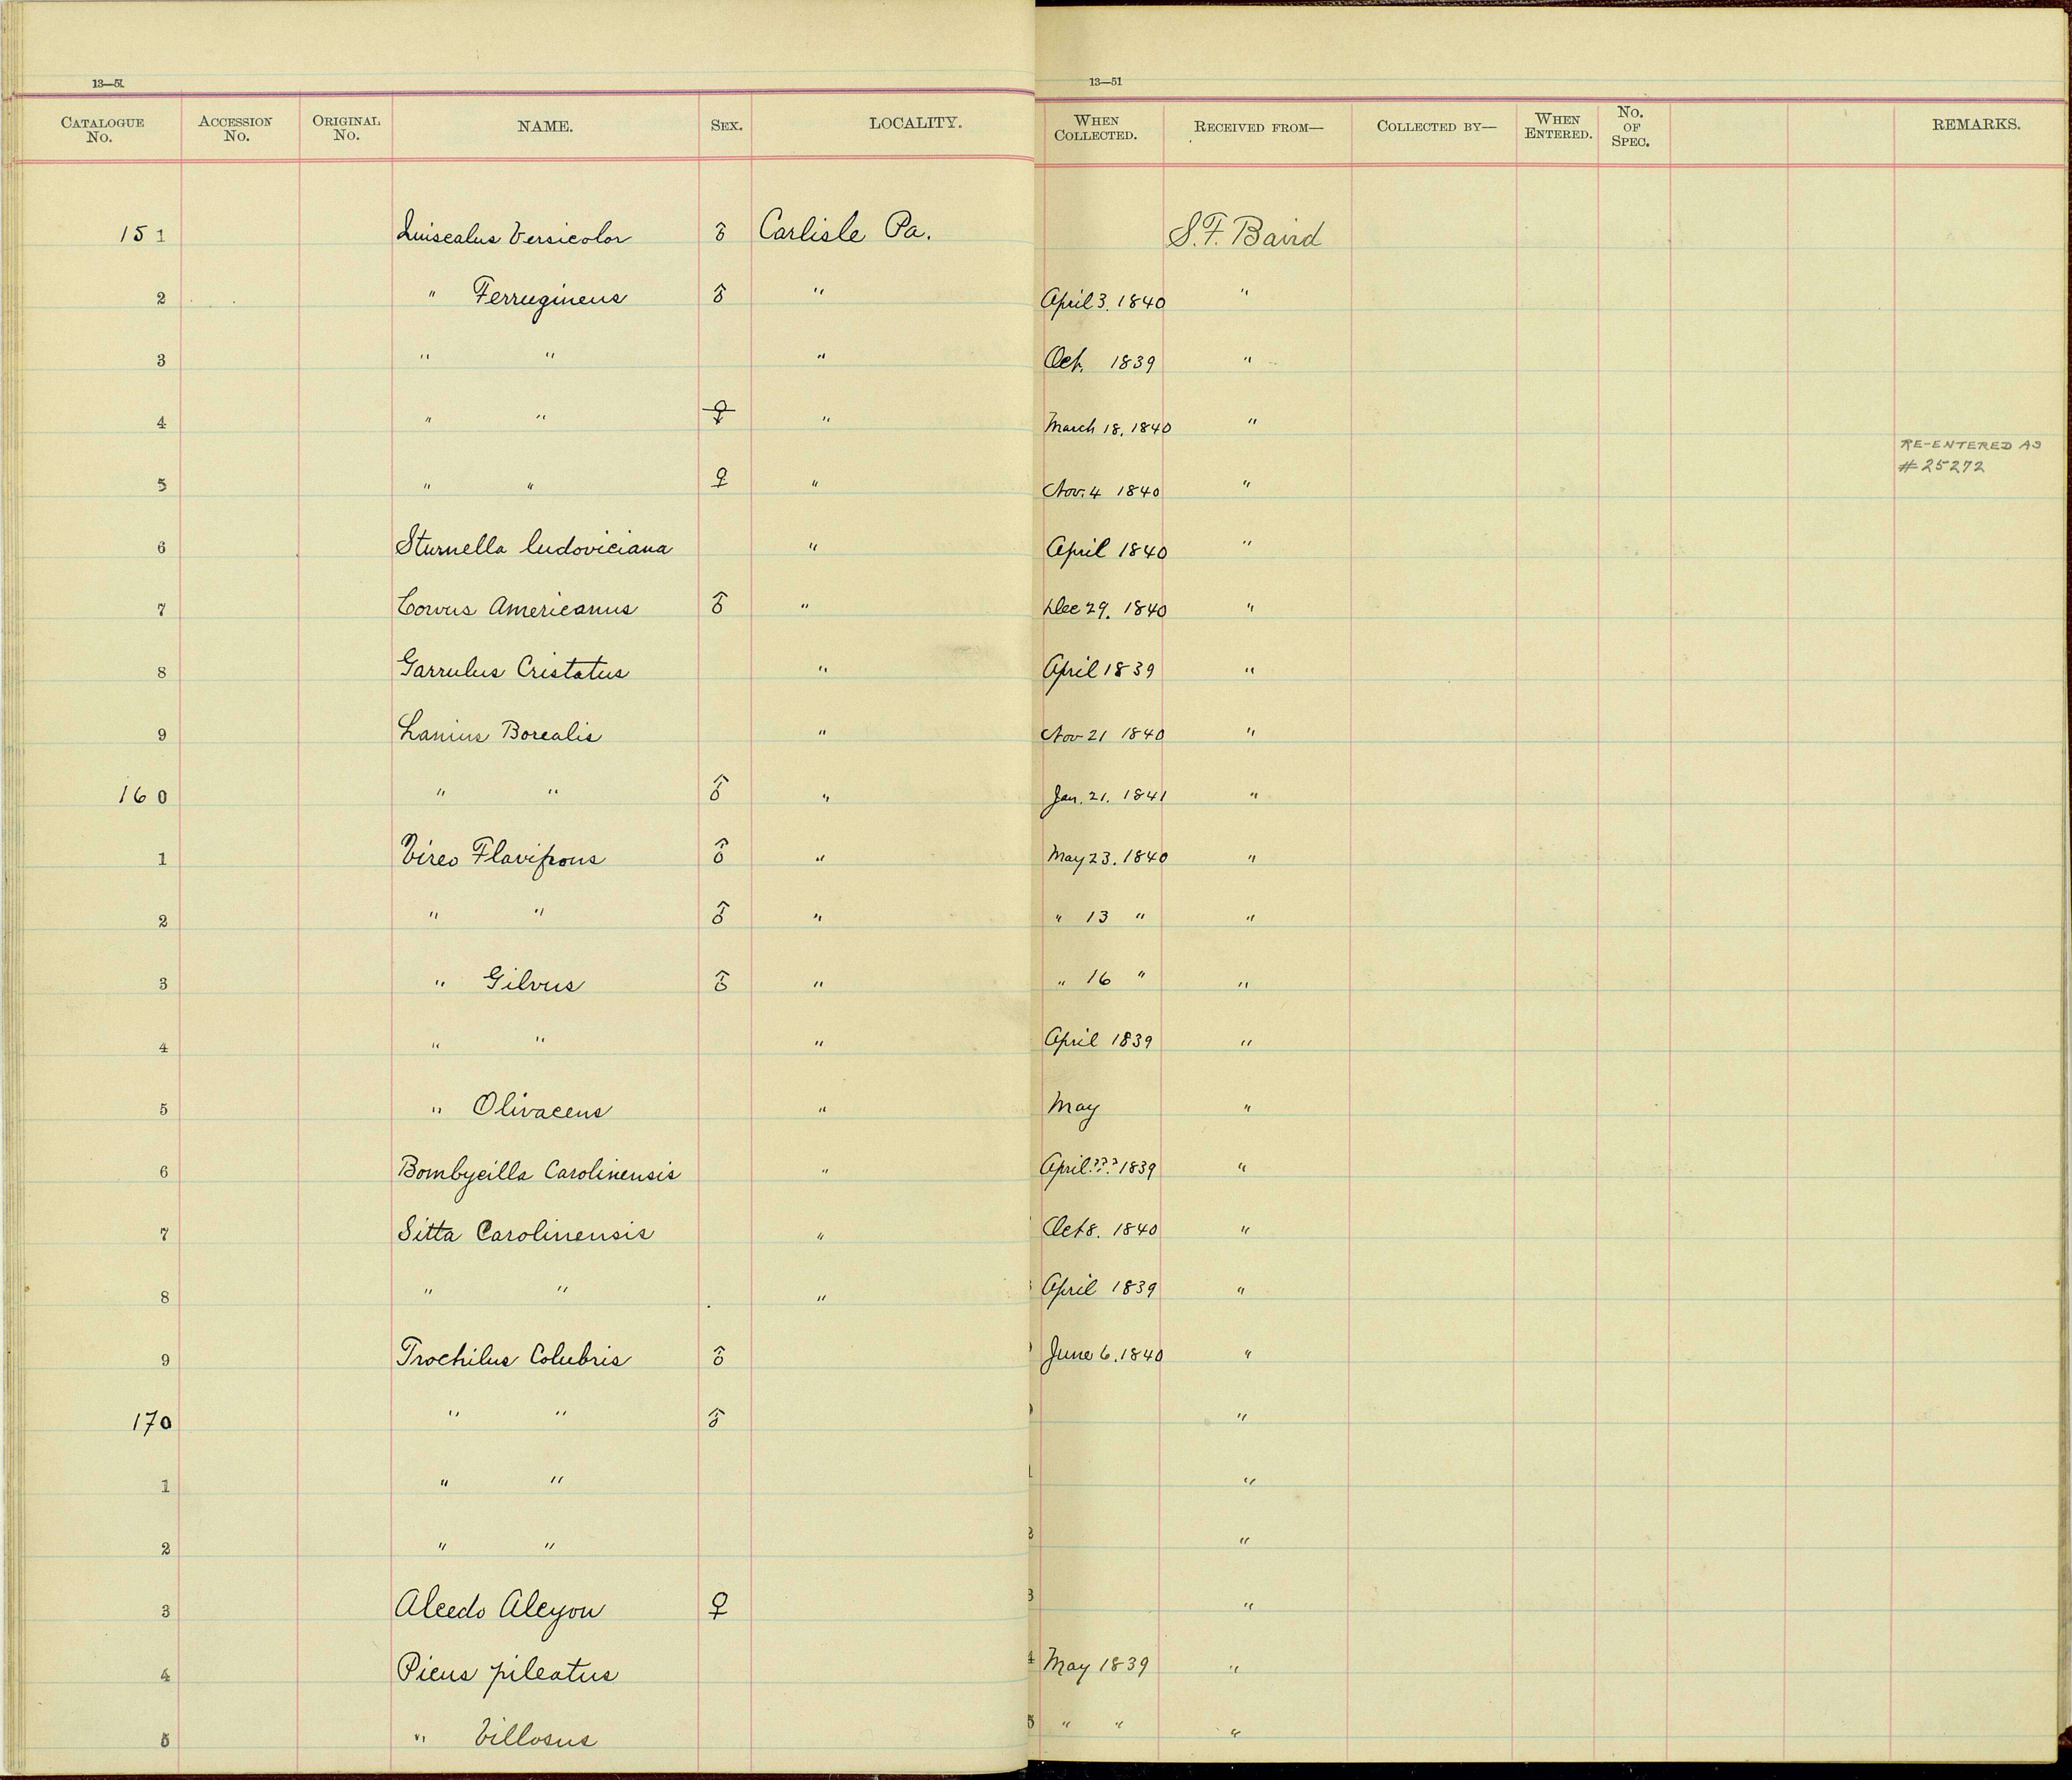 13—51 13—51
CATALOGUE No. ACCESSION No. ORIGINAL No. NAME. SEX. LOCALITY. WHEN COLLECTED. RECEIVED FROM— COLLECTED BY— WHEN ENTERED. No. OF SPEC. REMARKS.
151 Quiscalus Versicolor ♂ Carlisle Pa. S. F. Baird
2 " Ferrugineus ♂ " April 3. 1840 "
3 " " " Oct. 1839 "
4 " " ♀ " March 18. 1840 "
RE-ENTERED AS
# 25272
5 " " ♀ " Nov. 4 1840 "
6 Sturnella ludoviciana " April 1840 "
7 Corvus Americanus ♂ " Dec 29. 1840 "
8 Garrulus Cristatus " April 1839 "
9 Lanius Borealis " Nov 21 1840 "
160 " " ♂ " Jan. 21. 1841 "
1 Vireo Flavifrons ♂ " May 23. 1840 "
2 " " ♂ " " 13 " "
3 " Gilvus ♂ " " 16 " "
4 " " " April 1839 "
5 " Olivaceus " May "
6 Bombycilla Carolinensis " April ??? 1839 "
7 Sitta Carolinensis " Oct 8. 1840 "
8 " " " April 1839 "
9 Trochilus Colubris ♂ June 6. 1840 "
170 " " ♂ "
1 " " "
2 " " "
3 Alcedo Alcyon ♀ "
4 Picus pileatus May 1839 "
5 " Villosus " " "